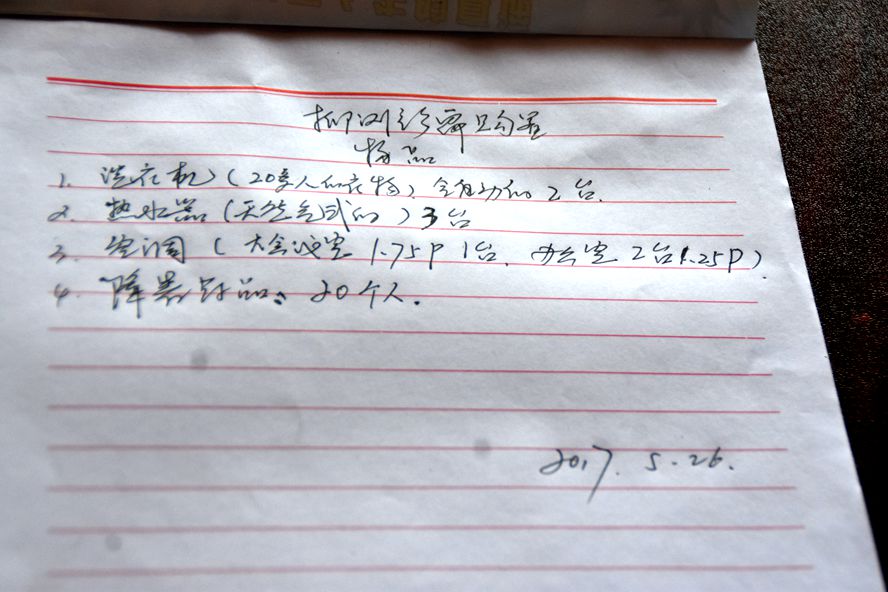 购置
物品
1. 洗衣机(20多人的衣物)、全自动的 2台.
2. 热水器(天然气式的)3台
3. 空调(大会议室 1.75P 1台、办公室 2台1.25P).
4. 降暑用品、20个人.
2017. 5. 26.